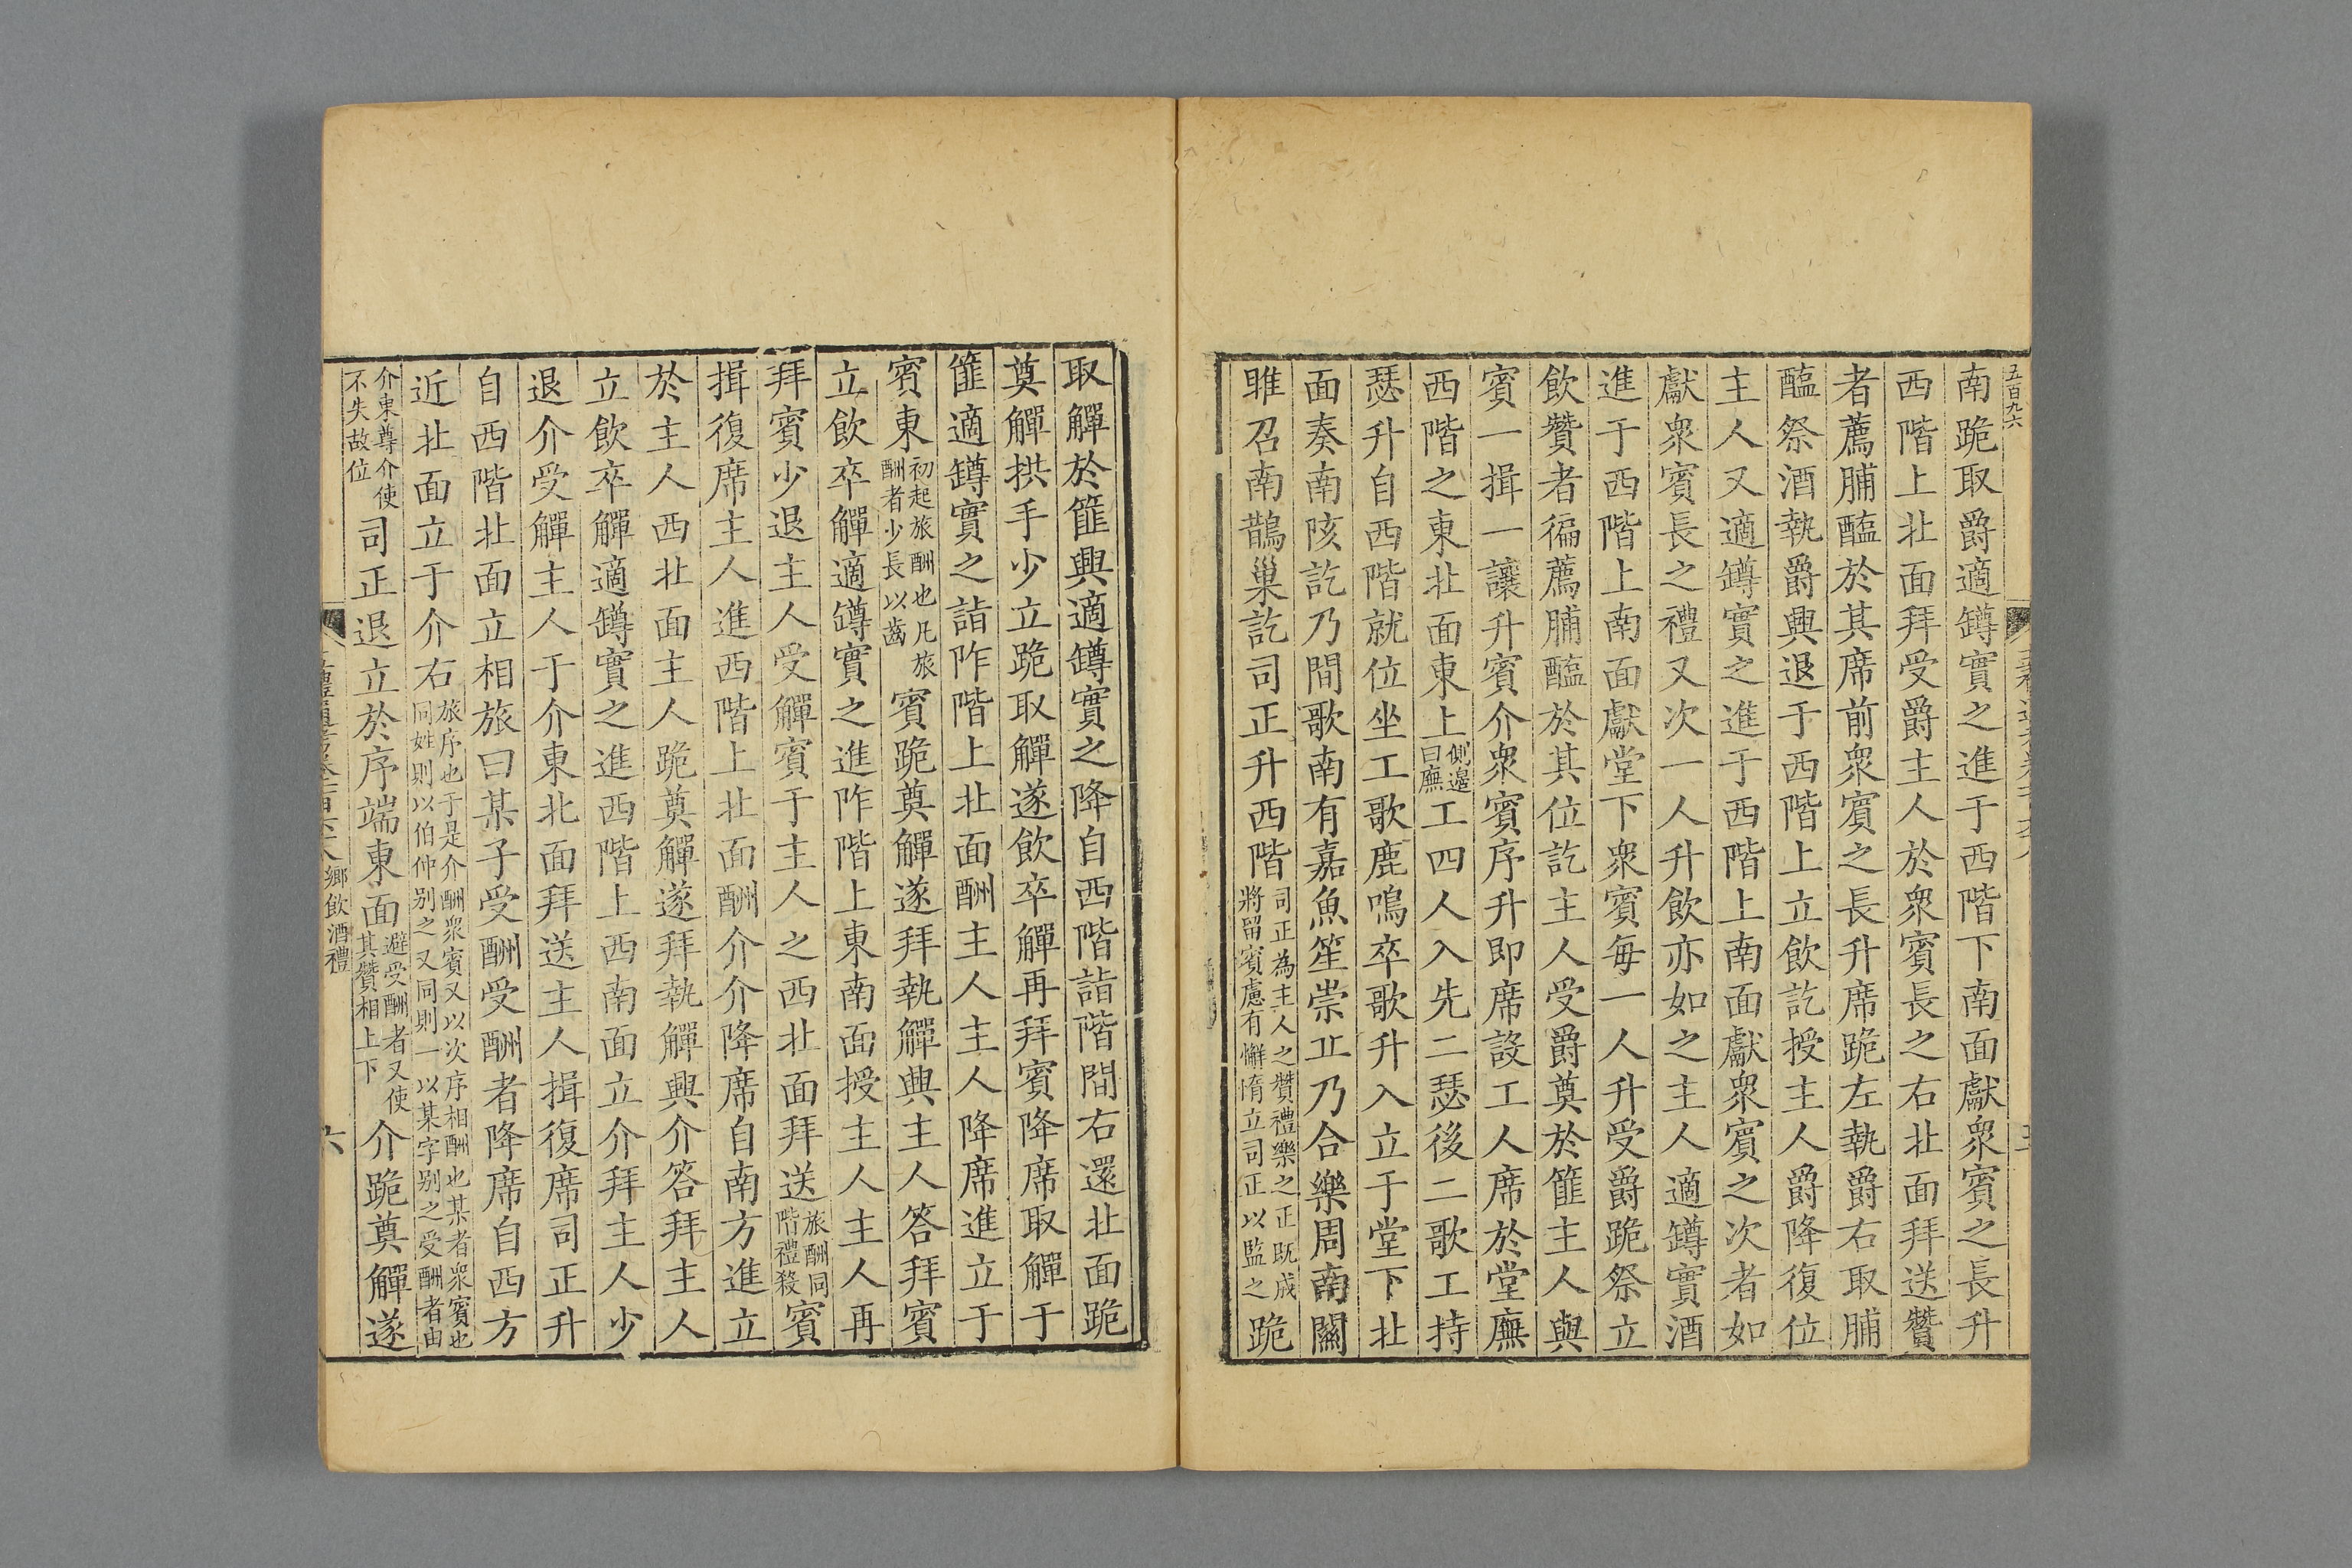 五百九六
南跪取爵適罇實之進于西階下南面獻衆賓之長升
西階上北面拜受爵主人於衆賓長之右北面拜送贊
者薦脯醢於其席前衆賓之長升席跪左執爵右取脯
醢祭酒執爵興退于西階上立飲訖授主人爵降復位
主人又適罇實之進于西階上南面獻衆賓之次者如
獻衆賓長之禮又次一人升飲亦如之主人適罇實酒
進于西階上南面獻堂下衆賓每一人升受爵跪祭立
飲贊者徧薦脯醢於其位訖主人受爵奠於篚主人與
賓一揖一讓升賓介衆賓序升即席設工人席於堂廡
西階之東北面東上側邊曰廡工四人入先二瑟後二歌工持
瑟升自西階就位坐工歌鹿鳴卒歌升入立于堂下北
面奏南陔訖乃間歌南有嘉魚笙崇丘乃合樂周南關
雎召南鵲巢訖司正升西階司正為主人之贊禮樂之正既成將留賓慮有懈惰立司正以監之跪
取觶於篚興適罇實之降自西階詣階間右還北面跪
奠觶拱手少立跪取觶遂飲卒觶再拜賓降席取觶于
篚適罇實之詣阼階上北面酬主人主人降席進立于
賓東初起旅酬也凡旅酬者少長以齒賓跪奠觶遂拜執觶興主人答拜賓
立飲卒觶適罇實之進阼階上東南面授主人主人再
拜賓少退主人受觶賓于主人之西北面拜送旅酬同階禮殺賓
揖復席主人進西階上北面酬介介降席自南方進立
於主人西北面主人跪奠觶遂拜執觶興介答拜主人
立飲卒觶適罇實之進西階上西南面立介拜主人少
退介受觶主人于介東北面拜送主人揖復席司正升
自西階北面立相旅曰某子受酬受酬者降席自西方
近北面立于介右旅序也于是介酬衆賓又以次序相酬也某者衆賓也同姓則以伯仲别之又同則一以某字别之受酬者由
介東尊介使不失故位司正退立於序端東面避受酬者又使其贊相上下介跪奠觶遂
鄉飲酒禮
六